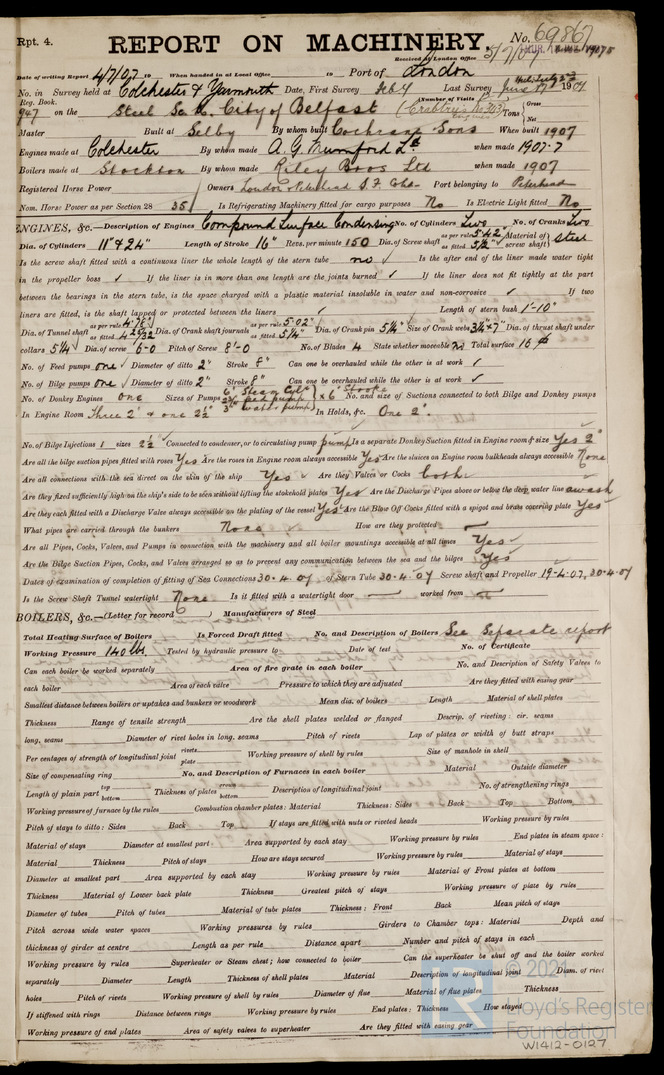 Rpt. 4.
REPORT ON MACHINERY.
No. 69867
Received at London Office
Date of writing Report 4/7/07 19 When handed in at Local Office 19 Port of London
No. in Survey held at Colchester & Yarmouth Date, First Survey Last Survey 1907
Reg. Book. (Number of Visits
947 on the Steel Sc K. City of Belfast Tons Gross Net
Master Built at Selby By whom built Cochrane Sons When built 1907
Engines made at Colchester By whom made A. G. Mumford Ld when made 1907-7
Boilers made at Stockton By whom made Riley Bros Ltd when made 1907
Registered Horse Power Owners London Peterhead S. F. Port belonging to Peterhead
Nom. Horse Power as per Section 28 35 Is Refrigerating Machinery fitted for cargo purposes No Is Electric Light fitted No
ENGINES, &c.—Description of Engines Compound Surface Condensing No. of Cylinders Two No. of Cranks Two
Dia. of Cylinders 11" & 24" Length of Stroke 16" Revs. per minute 150 Dia. of Screw shaft as per rule 5.42 as fitted 5 1/2" Material of screw shaft steel
Is the screw shaft fitted with a continuous liner the whole length of the stern tube no Is the after end of the liner made water tight
in the propeller boss ✓ If the liner is in more than one length are the joints burned ✓ If the liner does not fit tightly at the part
between the bearings in the stern tube, is the space charged with a plastic material insoluble in water and non-corrosive ✓ If two
liners are fitted, is the shaft lapped or protected between the liners ✓ Length of stern bush 1'-10"
Dia. of Tunnel shaft as per rule 4.78" as fitted 4 29/32 Dia. of Crank shaft journals as per rule 5.02" as fitted 5 1/4" Dia. of Crank pin 5 1/4" Size of Crank webs 3 1/4 x 7" Dia. of thrust shaft under
collars 5 1/4 Dia. of screw 6'-0 Pitch of Screw 8'-0 No. of Blades 4 State whether moveable no Total surface 16
No. of Feed pumps one Diameter of ditto 2" Stroke 8" Can one be overhauled while the other is at work ✓
No. of Bilge pumps one Diameter of ditto 2" Stroke 8" Can one be overhauled while the other is at work ✓
No. of Donkey Engines one Sizes of Pumps 6" Steam Cyl feed pump 3" water pump x 6" Stroke No. and size of Suctions connected to both Bilge and Donkey pumps
In Engine Room Three 2" & one 2 1/2" In Holds, &c. One 2"
No. of Bilge Injections 1 sizes 2 1/2 Connected to condenser, or to circulating pump pump Is a separate Donkey Suction fitted in Engine room & size Yes 2"
Are all the bilge suction pipes fitted with roses Yes Are the roses in Engine room always accessible Yes Are the sluices on Engine room bulkheads always accessible None
Are all connections with the sea direct on the skin of the ship Yes Are they Valves or Cocks both
Are they fixed sufficiently high on the ship's side to be seen without lifting the stokehold plates Yes Are the Discharge Pipes above or below the deep water line awash
Are they each fitted with a Discharge Valve always accessible on the plating of the vessel Yes Are the Blow Off Cocks fitted with a spigot and brass covering plate Yes
What pipes are carried through the bunkers None How are they protected
Are all Pipes, Cocks, Valves, and Pumps in connection with the machinery and all boiler mountings accessible at all times Yes
Are the Bilge Suction Pipes, Cocks, and Valves arranged so as to prevent any communication between the sea and the bilges Yes
Dates of examination of completion of fitting of Sea Connections 30-4-07 of Stern Tube 30-4-07 Screw shaft and Propeller 19-4-07, 30-4-07
Is the Screw Shaft Tunnel watertight None Is it fitted with a watertight door — worked from —
BOILERS, &c.—(Letter for record ) Manufacturers of Steel
Total Heating Surface of Boilers Is Forced Draft fitted No. and Description of Boilers See Separate report
Working Pressure 140 lbs. Tested by hydraulic pressure to Date of test No. of Certificate
Can each boiler be worked separately Area of fire grate in each boiler No. and Description of Safety Valves to
each boiler Area of each valve Pressure to which they are adjusted Are they fitted with easing gear
Smallest distance between boilers or uptakes and bunkers or woodwork Mean dia. of boilers Length Material of shell plates
Thickness Range of tensile strength Are the shell plates welded or flanged Descrip. of riveting: cir. seams
long. seams Diameter of rivet holes in long. seams Pitch of rivets Lap of plates or width of butt straps
Per centages of strength of longitudinal joint rivets plate Working pressure of shell by rules Size of manhole in shell
Size of compensating ring No. and Description of Furnaces in each boiler Material Outside diameter
Length of plain part top bottom Thickness of plates crown bottom Description of longitudinal joint No. of strengthening rings
Working pressure of furnace by the rules Combustion chamber plates: Material Thickness: Sides Back Top Bottom
Pitch of stays to ditto: Sides Back Top If stays are fitted with nuts or riveted heads Working pressure by rules
Material of stays Diameter at smallest part Area supported by each stay Working pressure by rules End plates in steam space:
Material Thickness Pitch of stays How are stays secured Working pressure by rules Material of stays
Diameter at smallest part Area supported by each stay Working pressure by rules Material of Front plates at bottom
Thickness Material of Lower back plate Thickness Greatest pitch of stays Working pressure of plate by rules
Diameter of tubes Pitch of tubes Material of tube plates Thickness: Front Back Mean pitch of stays
Pitch across wide water spaces Working pressures by rules Girders to Chamber tops: Material Depth and
thickness of girder at centre Length as per rule Distance apart Number and pitch of stays in each
Working pressure by rules Superheater or Steam chest; how connected to boiler Can the superheater be shut off and the boiler worked
separately Diameter Length Thickness of shell plates Material Description of longitudinal joint Diam. of rivet
holes Pitch of rivets Working pressure of shell by rules Diameter of flue Material of flue plates Thickness
If stiffened with rings Distance between rings Working pressure by rules End plates: Thickness How stayed
Working pressure of end plates Area of safety valves to superheater Are they fitted with easing gear
© 2021
Lloyd's Register
Foundation
W1412-0127